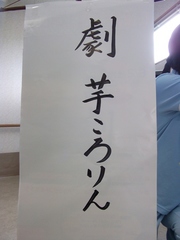 劇 芋ころりん